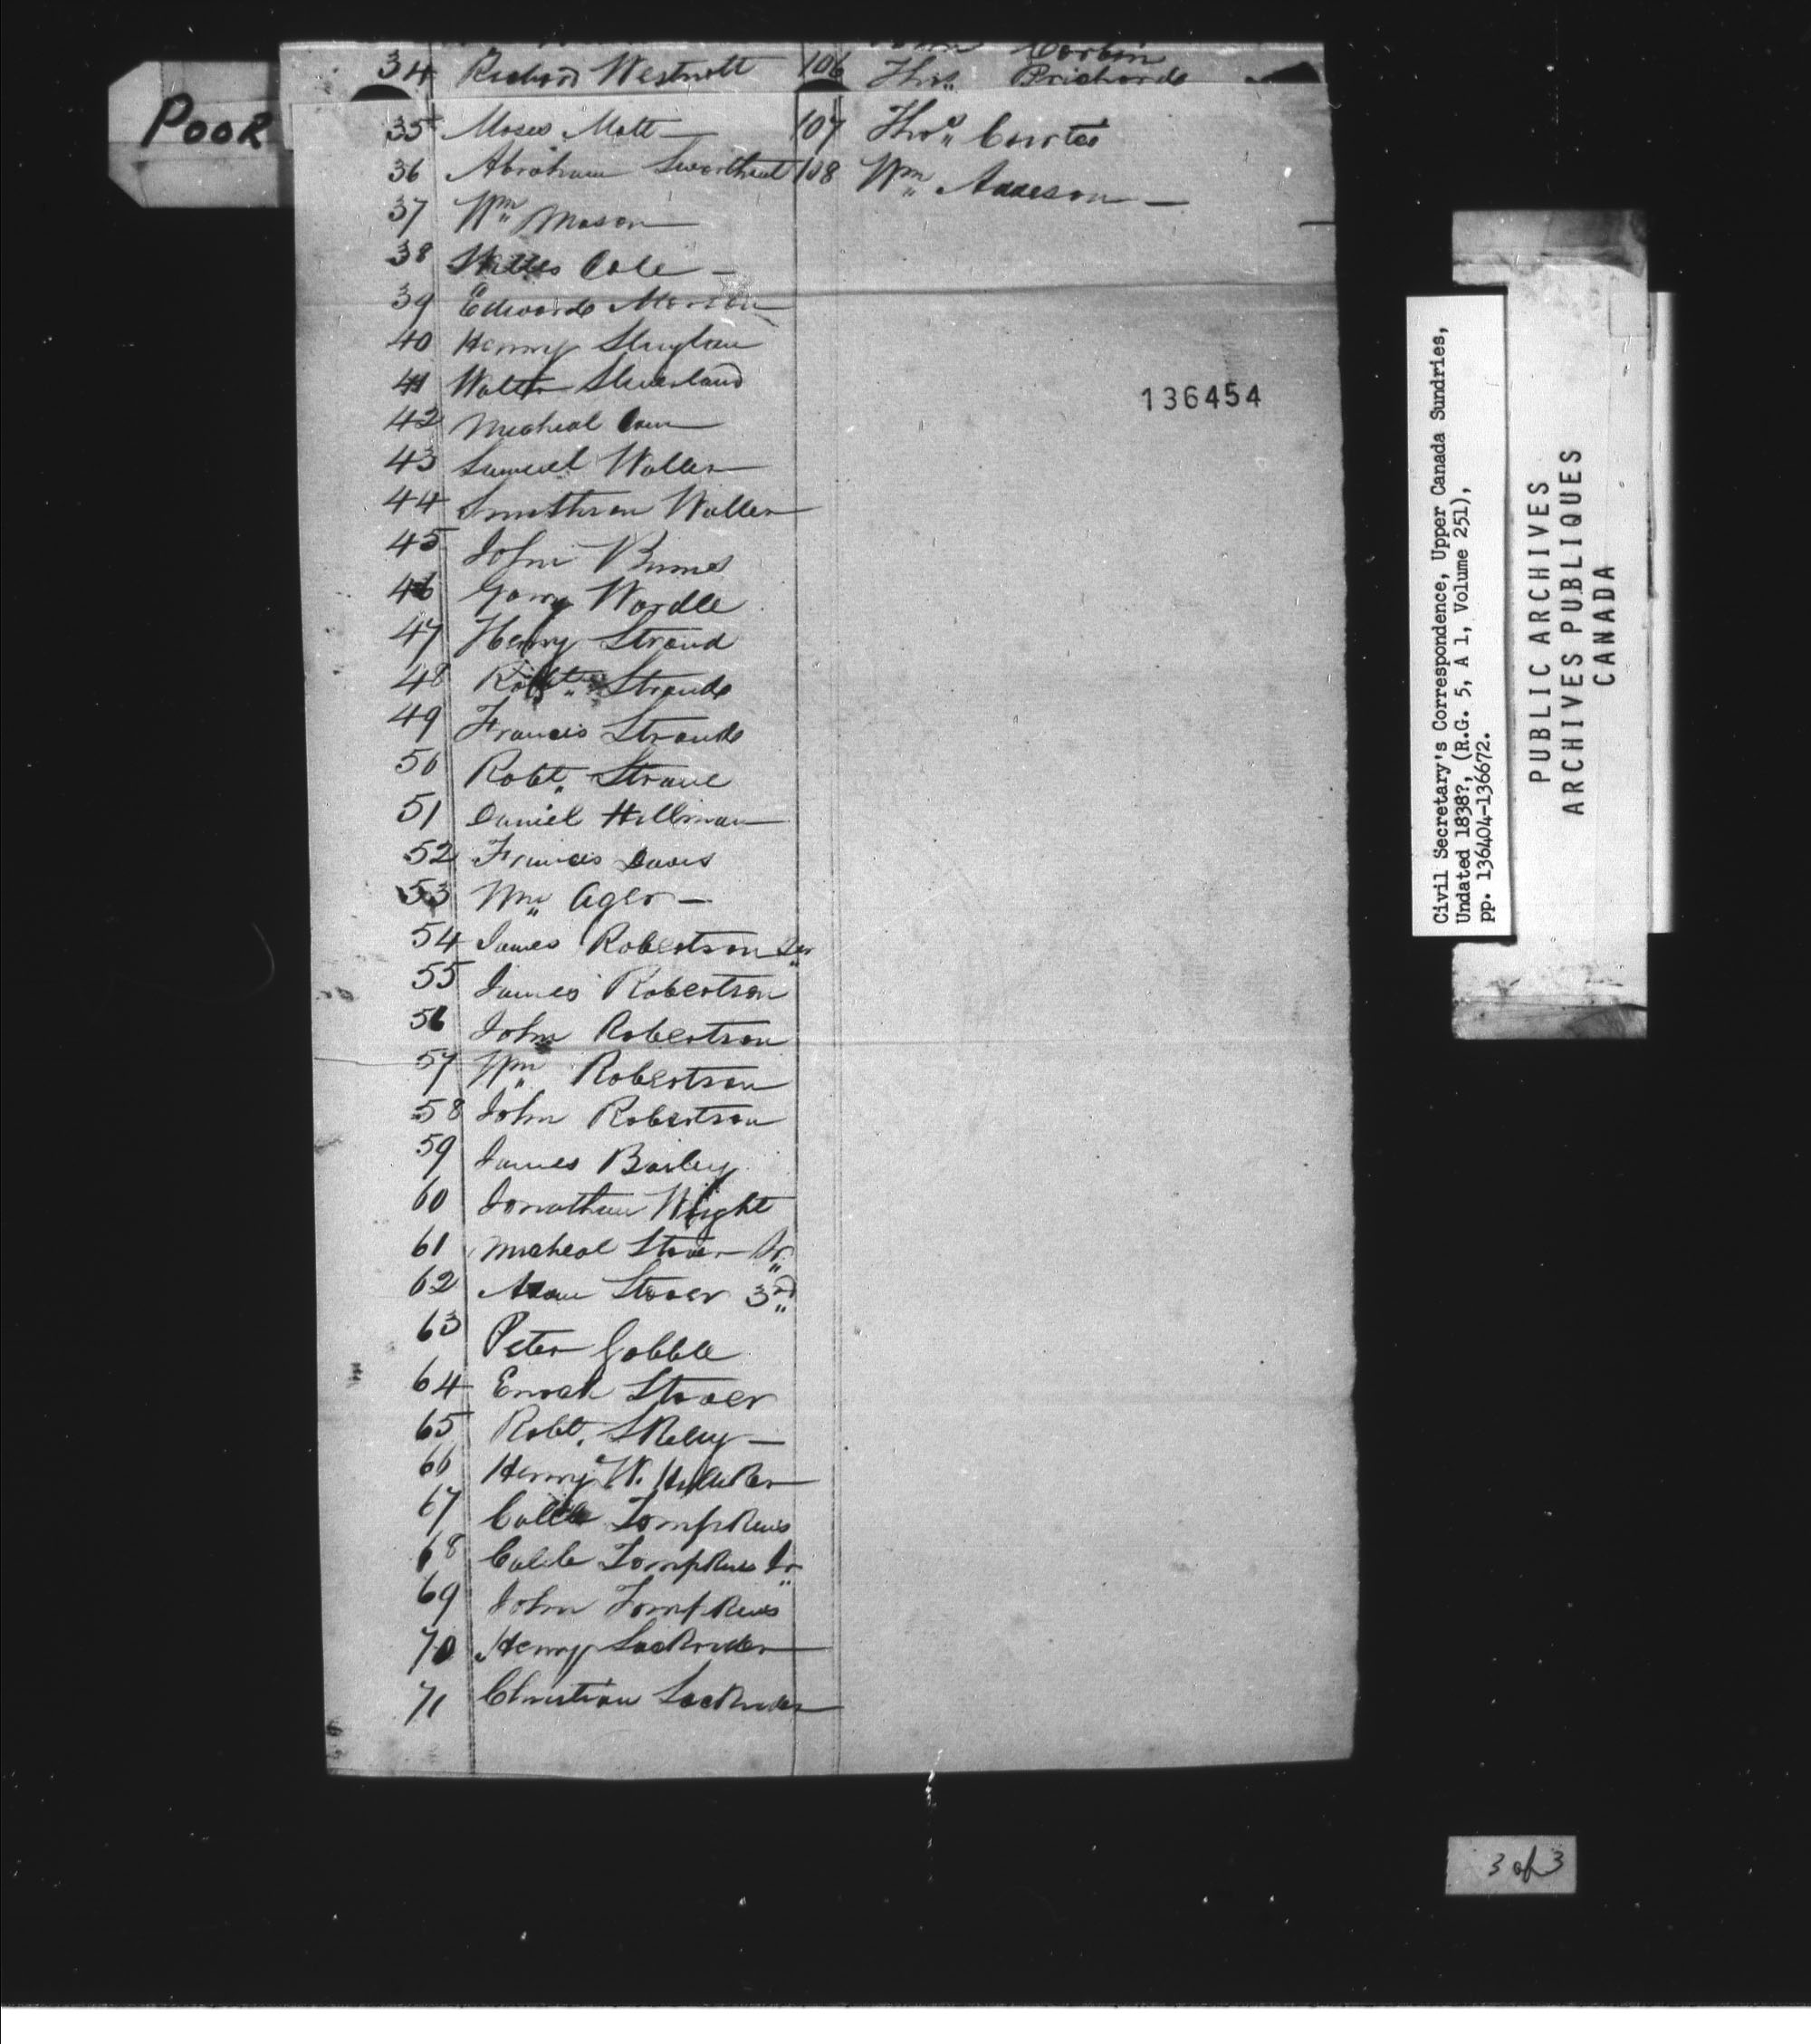 Corbin
34 Richard Westnott 106 Thos Prichard
POOR
35 Moses Mott 107 Thos Curtes
36 Abraham Swarthout 108 Wm Addeson
37 Wm Mason
38 Cole
39 Edward
40 Henry
41 Walter
42 Micheal
43 Samuel Waller
44 Waller
45 John
46 Wardle
47 Henry Stroud
48 Robt Stroud
49 Francis Stroud
50 Robt
51 Daniel Hillman
52 Francis Davis
53 Wm Ager
54 James Robertson
55 James Robertson
56 John Robertson
57 Wm Robertson
58 John Robertson
59 James Bailey
60 Jonathan Wright
61 Micheal Stover Jr
62 Adam Stover 3rd
63 Peter Gobble
64 Enoch Stover
65 Robt. Skelly
66 Henry W.
67 Caleb Tompkins
68 Caleb Tompkins Jr
69 John Tompkins
70 Henry
71 Christian
136454
Civil Secretary's Correspondence, Upper Canada Sundries,
Undated 1838?, (R.G. 5, A 1, Volume 251),
pp. 136404-136672.
PUBLIC ARCHIVES
ARCHIVES PUBLIQUES
CANADA
3 of 3